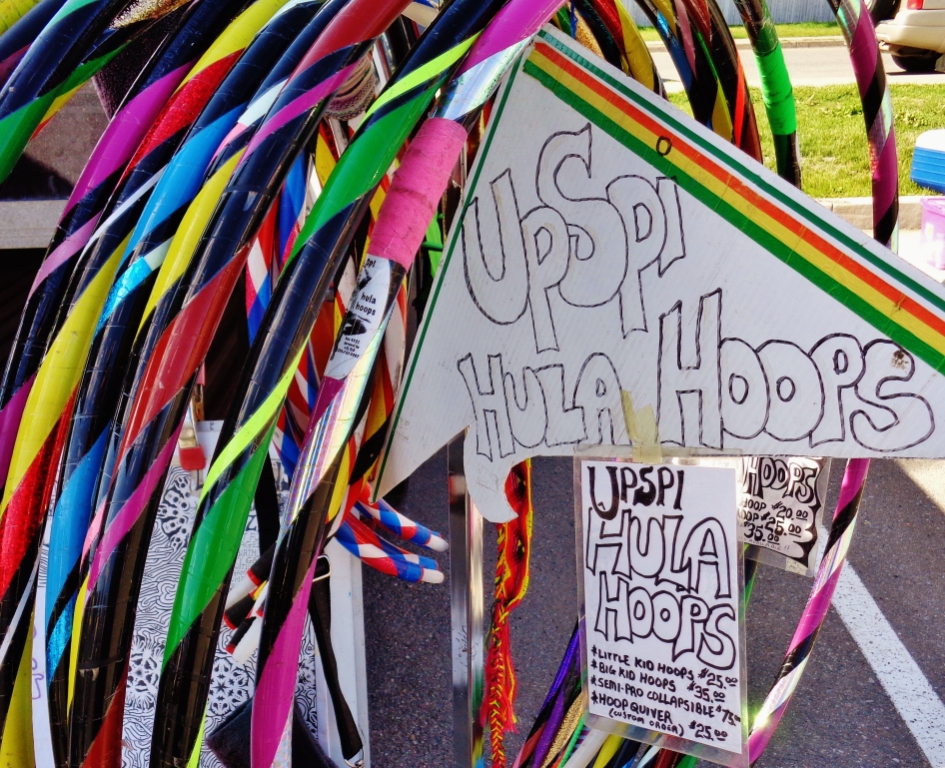 UpSpi
HULA HOOPS
spi
hula
hoops
HOOPS
HOOP $20.00
OOP $25.00
$35.00
UPSPI
HULA
HOOPS
*LITTLE KID HOOPS $25.00
*BIG KID HOOPS $35.00
*SEMI-PRO COLLAPSIBLE $75.00
*HOOP QUIVER
(CUSTOM ORDER) $25.00